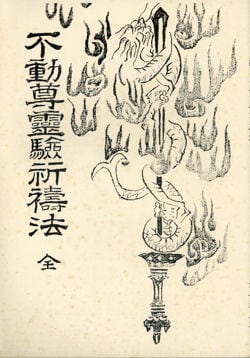 不動尊靈驗祈禱法
全